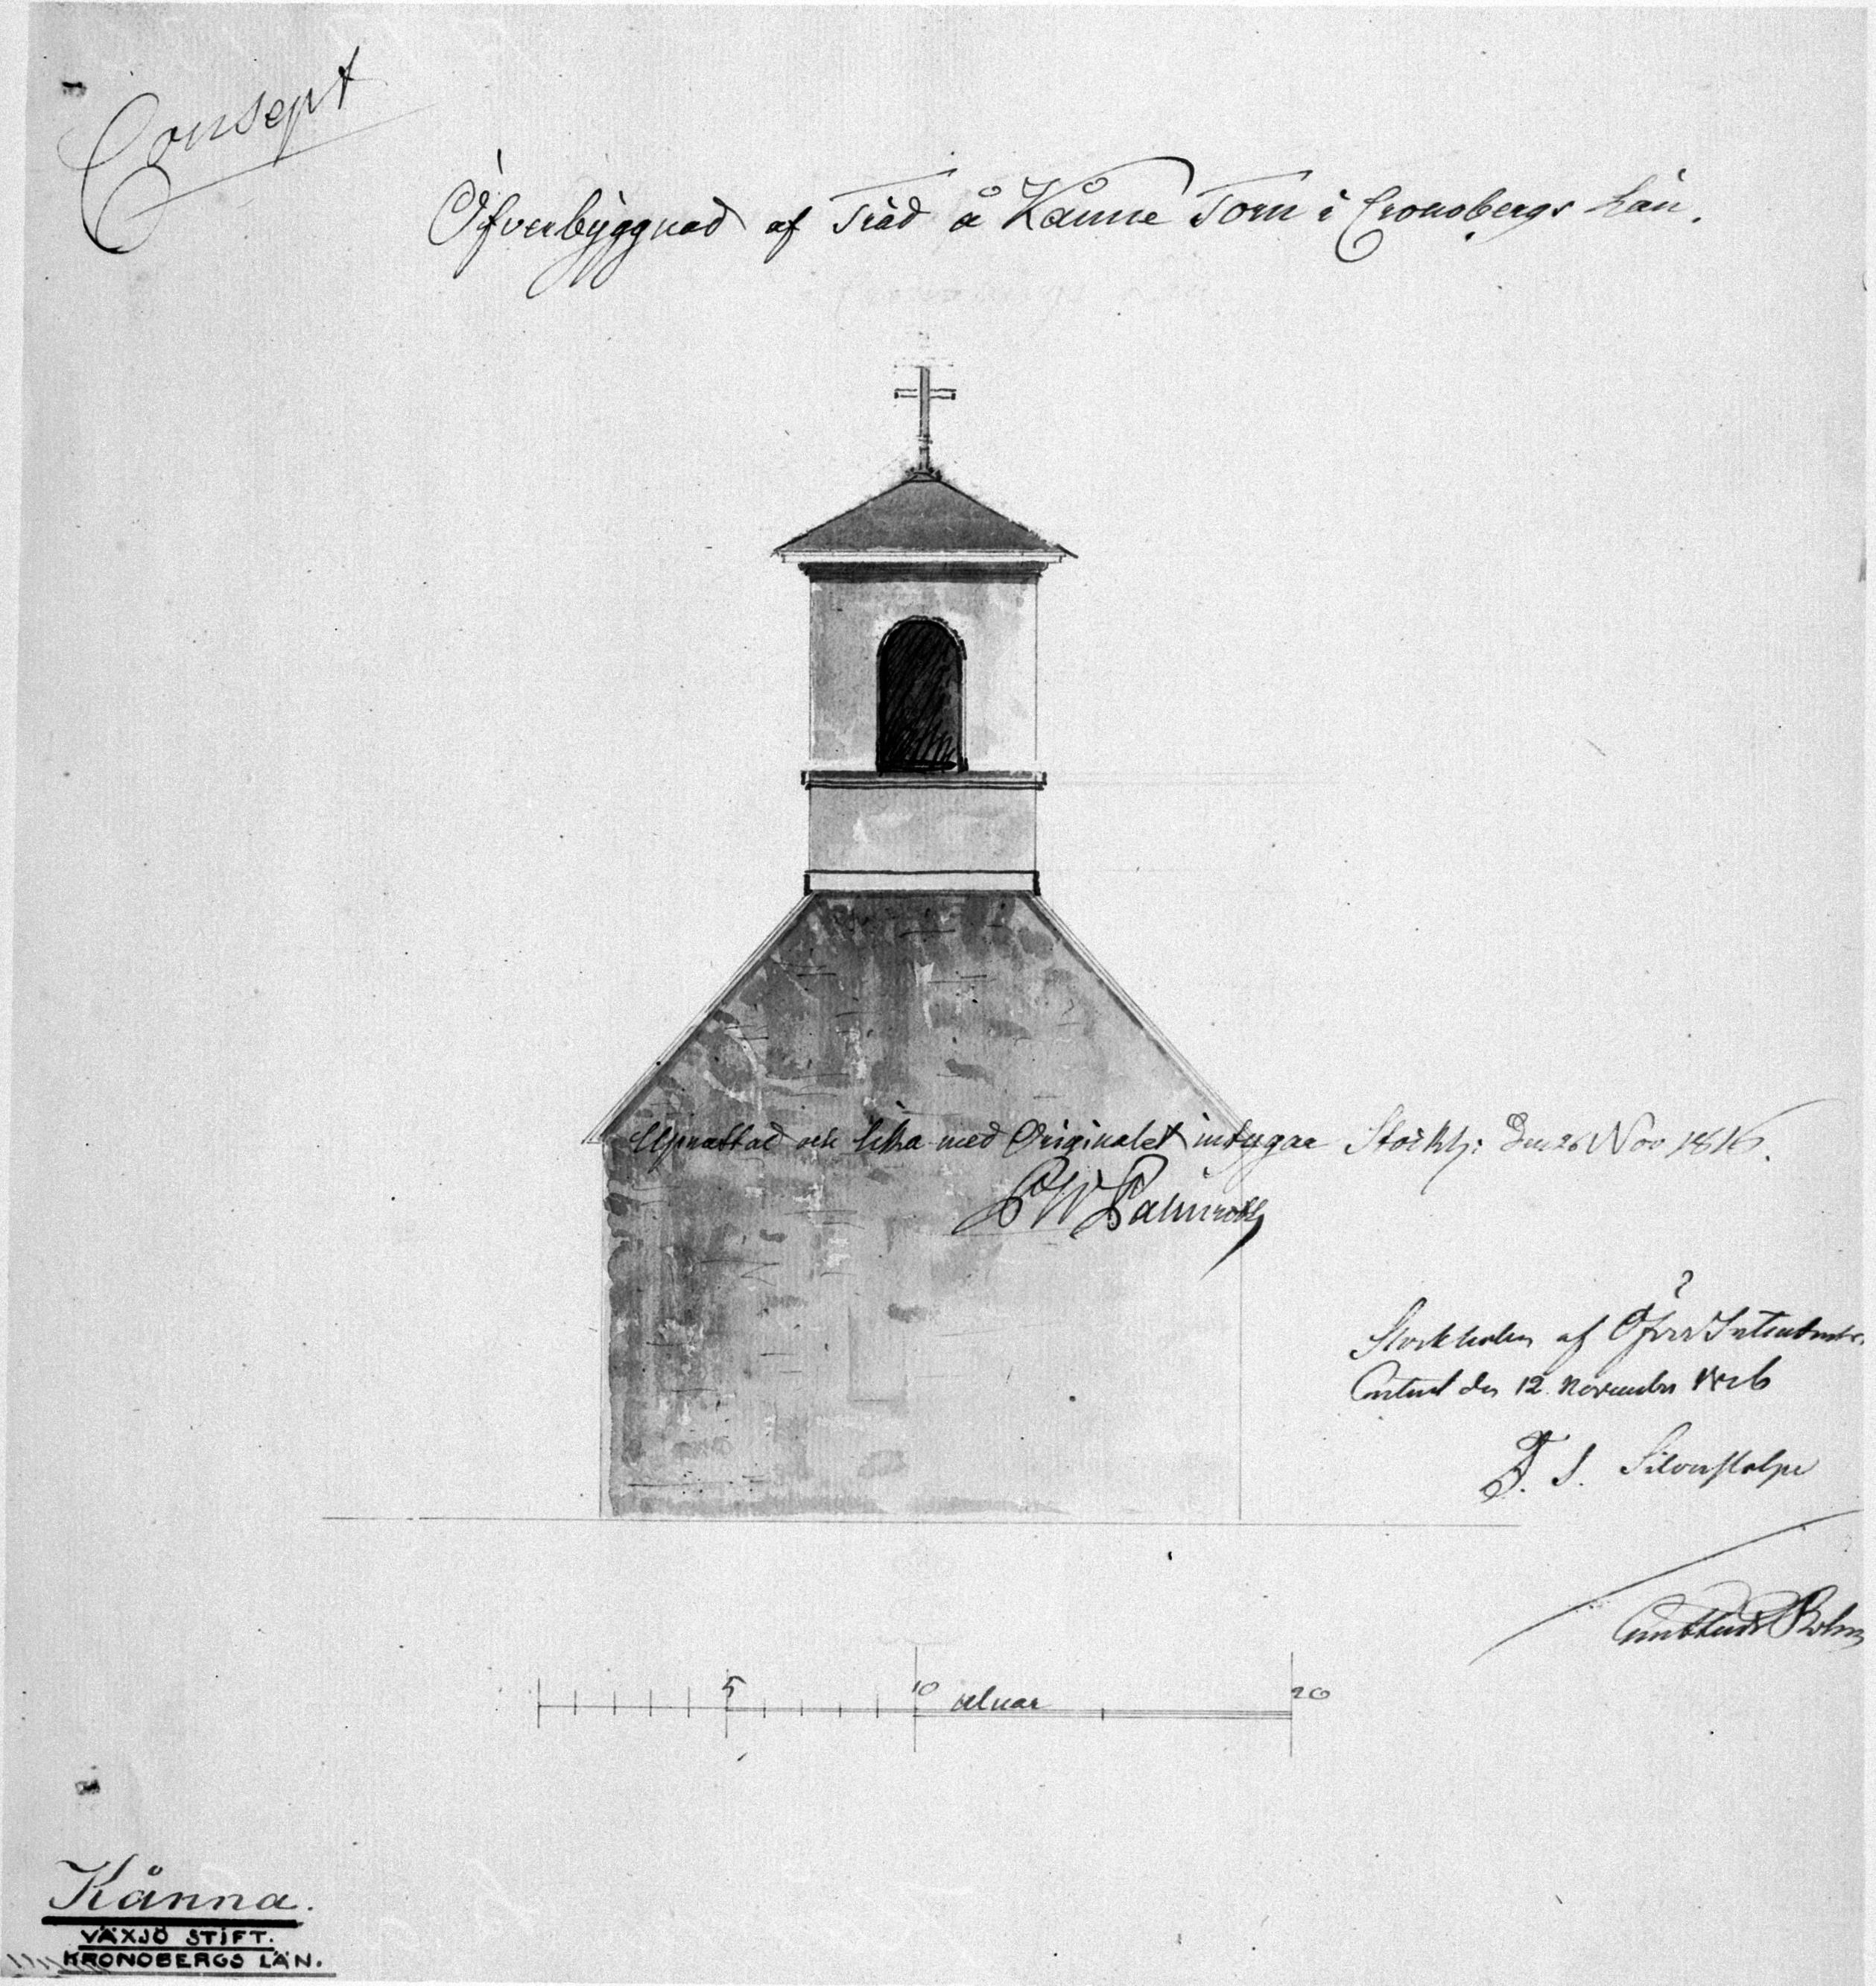 Consept
Öfverbyggnad af Träd å Kånne Torn i Cronobergs Län.
Uprättad och lika med Originalet intygar Stockh: den 26 Nov 1816.
Stockholm af Öfver Intendents.
Contoret den 12 November 1816
F. S. Silverstolpe
5 10 alnar 20
Kånna.
VÄXJÖ STIFT.
KRONOBERGS LÄN.